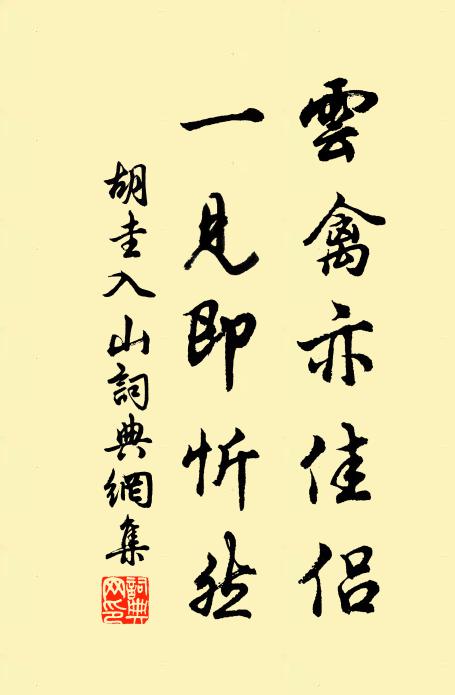 雲禽亦佳侶
一見即忻然
胡圭入山詞典網集
詞典网印